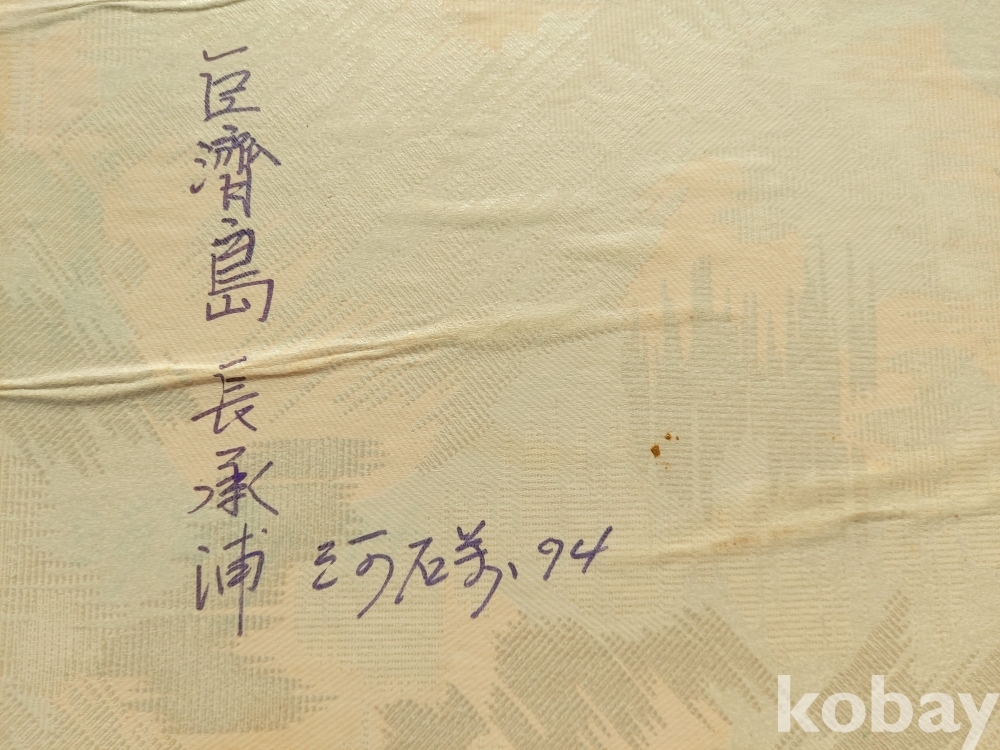 巨濟島 長承浦
河石 94
kobay